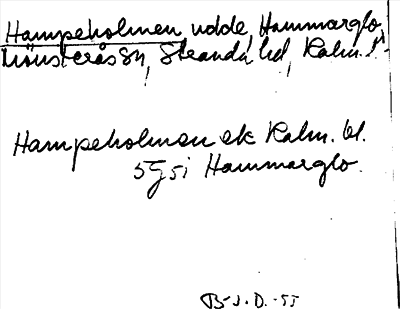 Hampeholmen udde, Hammarglo,
Mönsterås sn, Stranda hd, Kalm. l.
Hampeholmen ek Kalm. bl.
5 G 5 i Hammarglo.
B-J. D. -55